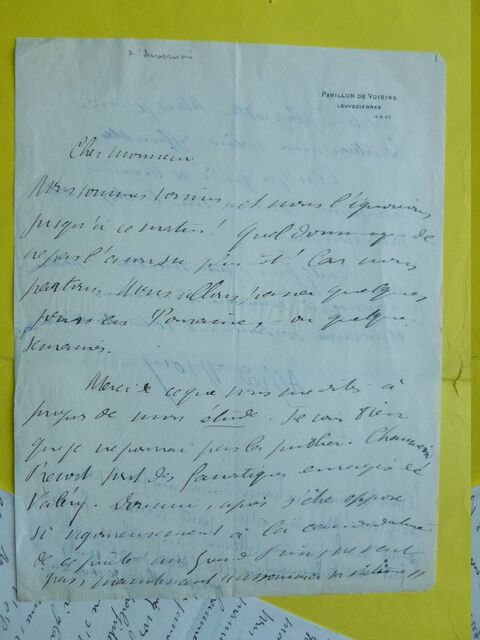 PAVILLON DE VOISINS
LOUVECIENNES
(S.&O)
1
Cher Monsieur
Nous sommes voisins et nous l'ignorions
jusqu'à ce matin! Quel dommage de
ne pas l'avoir su plus tôt! Car nous
partons. Nous allons passer quelques
jours en Touraine, ou quelques
semaines.
Merci de ce que vous me dites à
propos de mon étude. Je vois bien
que je ne pourrai pas la publier.
Prévost sont des fanatiques enragés de
Valéry. Doumic, après s'être opposé
si vigoureusement à la candidature
de ce poète au Grand Prix, ne veut
pas maintenant